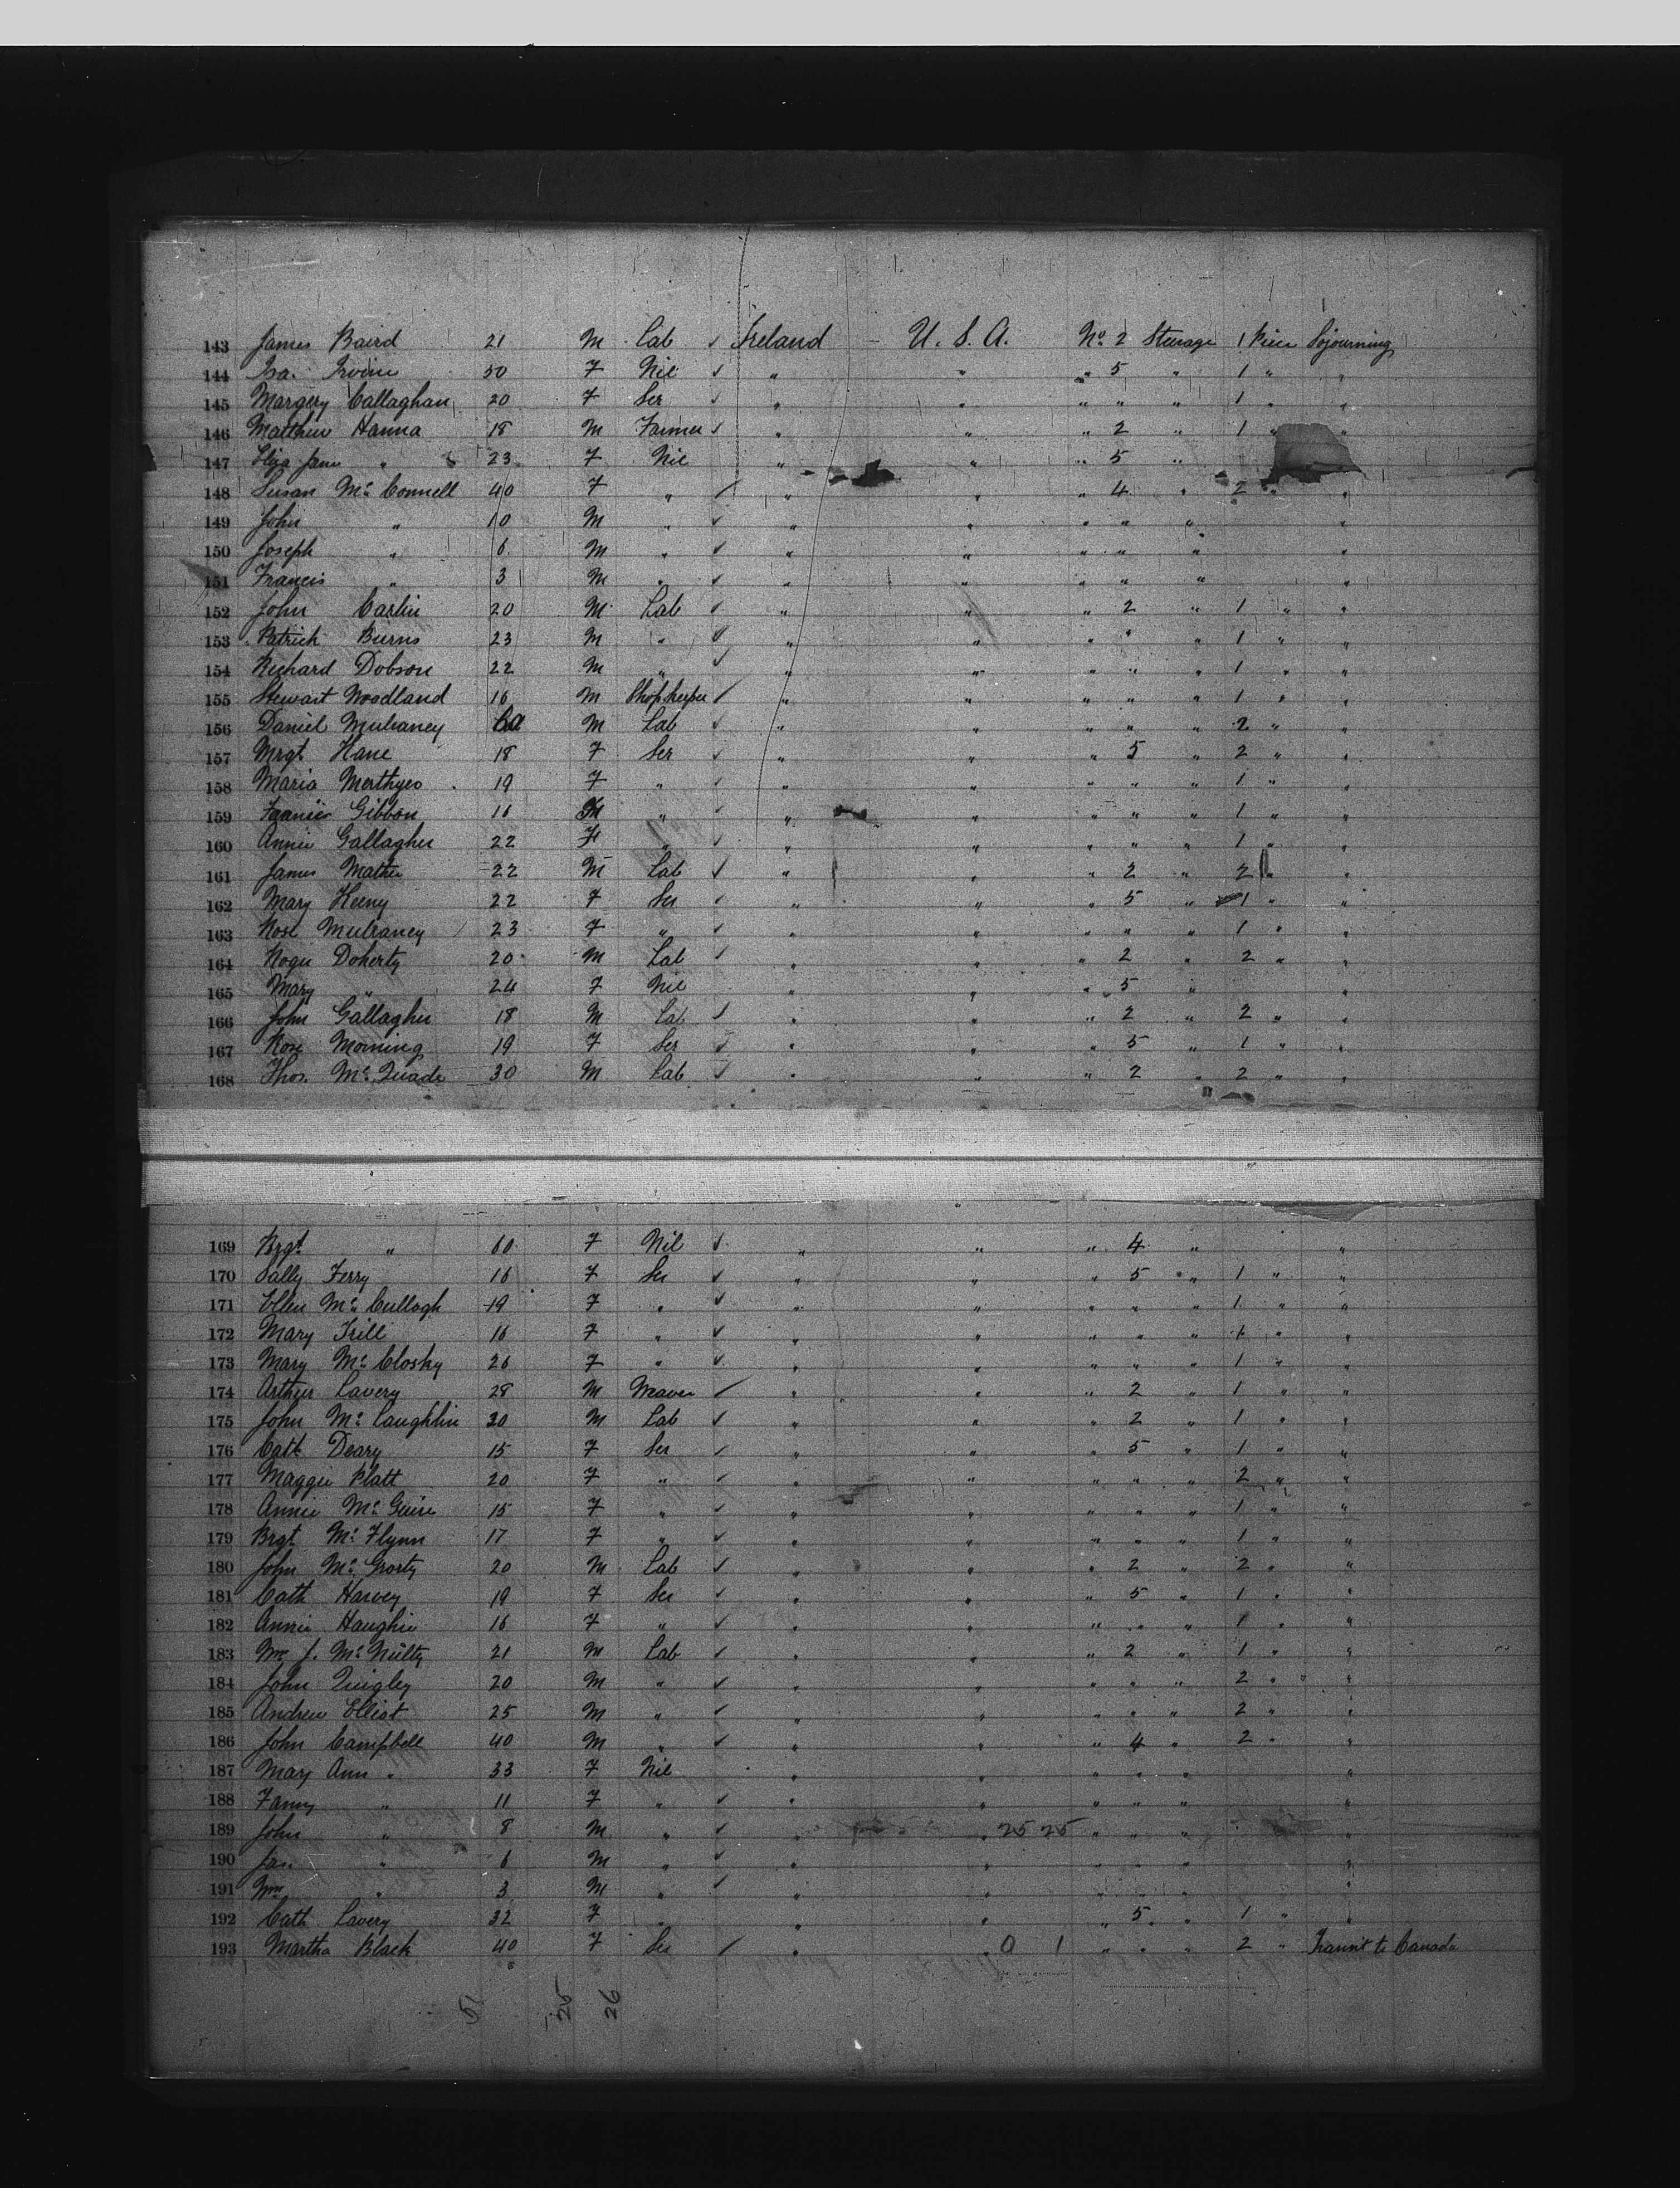 143 James Baird 21 M Lab ✓ Ireland U. S. A. No. 2 Steerage 1 Piece Sojourning
144 Isa. Irvine 50 F Nil ✓ " " " 5 " 1 " "
145 Margery Callaghan 20 F Ser ✓ " " " " " 1 " "
146 Matthew Hanna 18 M Farmer ✓ " " " 2 " 1 " "
147 Eliza Jane " 23 F Nil " " " 5 "
148 Susan McConnell 40 F " ✓ " " " 4 " 2 " "
149 John " 10 M " ✓ " " " " " "
150 Joseph " 6 M " ✓ " " " " " "
151 Francis " 3 M " ✓ " " " " " "
152 John Carlin 20 M Lab ✓ " " " 2 " 1 " "
153 Patrick Burns 23 M " ✓ " " " " " 1 " "
154 Richard Dobson 22 M " ✓ " " " " " 1 " "
155 Stewart Woodland 16 M Shopkeeper ✓ " " " " " 1 " "
156 Daniel Mulraney M Lab ✓ " " " " " 2 " "
157 Mrgt. Kane 18 F Ser ✓ " " " 5 " 2 " "
158 Maria 19 F " ✓ " " " " " 1 " "
159 Gibbon 16 " ✓ " " " " " 1 " "
160 Annie Gallagher 22 F " ✓ " " " " " 1 " "
161 James Mather 22 M Lab ✓ " " " 2 " 2 " "
162 Mary Heeny 22 F Ser ✓ " " " 5 " 1 " "
163 Rose Mulraney 23 F " ✓ " " " " " 1 " "
164 Roger Doherty 20 M Lab ✓ " " " 2 " 2 " "
165 Mary " 24 F Nil " " " 5 " "
166 John Gallagher 18 M Lab ✓ " " " 2 " 2 " "
167 Rose Morning 19 F Ser ✓ " " " 5 " 1 " "
168 Thos. McQuade 30 M Lab ✓ " " " 2 " 2 " "
169 Brgt " 60 F Nil ✓ " " " 4 " "
170 Sally Ferry 16 F Ser ✓ " " " 5 " 1 " "
171 Ellen McCullogh 19 F " ✓ " " " " " 1 " "
172 Mary Trill 16 F " ✓ " " " " " 1 " "
173 Mary McClosky 26 F " ✓ " " " " " 1 " "
174 Arthur Lavery 28 M Weaver ✓ " " " 2 " 1 " "
175 John McLaughlin 30 M Lab ✓ " " " 2 " 1 " "
176 Cath Deary 15 F Ser ✓ " " " 5 " 1 " "
177 Maggie Platt 20 F " ✓ " " " " " 2 " "
178 Annie McGuire 15 F " ✓ " " " " " 1 " "
179 Brgt McFlynn 17 F " ✓ " " " " " 1 " "
180 John McGrorty 20 M Lab ✓ " " " 2 " 2 " "
181 Cath Harvey 19 F Ser ✓ " " " 5 " 1 " "
182 Annie Haughie 16 F " ✓ " " " " " 1 " "
183 Wm J. McNulty 21 M Lab ✓ " " " 2 " 1 " "
184 John Quigley 20 M " ✓ " " " " " 2 " "
185 Andrew Elliot 25 M " ✓ " " " " " 2 " "
186 John Campbell 40 M " ✓ " " " 4 " 2 " "
187 Mary Ann " 33 F Nil " " " " " "
188 Fanny " 11 F " ✓ " " " " " "
189 John " 8 M " ✓ " " 25 25 " " " "
190 Jas. " 6 M " ✓ " " " " " "
191 Wm " 3 M " ✓ " " " " " "
192 Cath Lavery 32 F " " " " 5 " 1 " "
193 Martha Black 40 F Ser ✓ " " 0 1 " " " 2 " Transit to Canada
51 26